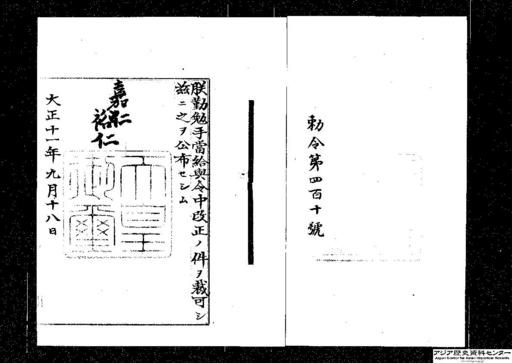 勅令第四百十號
朕勤勉手當給與令中改正ノ件ヲ裁可シ
茲ニ之ヲ公布セシム
嘉仁
裕仁
天皇御璽
大正十一年九月十八日
アジア歴史資料センター
Japan Center for Asian Historical Records